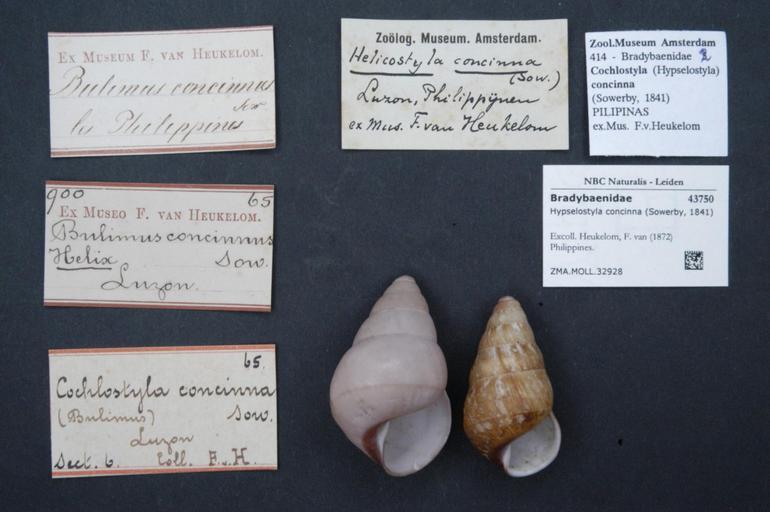 Ex Museum F. van Heukelom.
Bulimus concinnus
Sow
les Philippines
900 65
Ex Museo F. van Heukelom.
Bulimus concinnus
Helix Sow.
Luzon.
65.
Cochlostyla concinna
(Bulimus) Sow.
Luzon
Sect. 6. Coll. F.v.H.
Zoölog. Museum. Amsterdam.
Helicostyla concinna
(Sow.)
Luzon, Philippijnen
ex Mus. F. van Heukelom
Zool.Museum Amsterdam
414 - Bradybaenidae 2
Cochlostyla (Hypselostyla)
concinna
(Sowerby, 1841)
PILIPINAS
ex.Mus. F.v.Heukelom
NBC Naturalis - Leiden
Bradybaenidae 43750
Hypselostyla concinna (Sowerby, 1841)
Excoll. Heukelom, F. van (1872)
Philippines.
ZMA.MOLL.32928